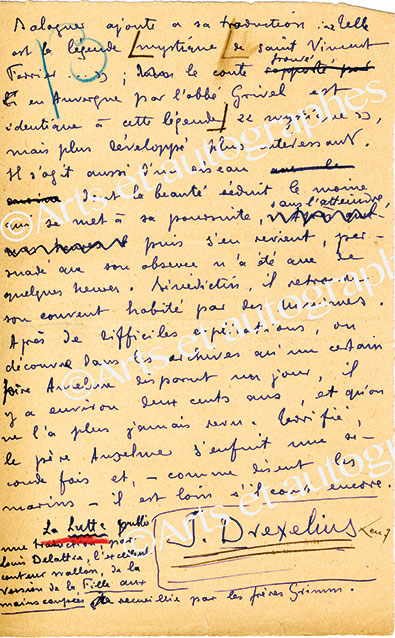 Balaguer ajoute à sa traduction : « Telle
est la légende mystique de saint Vincent
Ferrier... » ; Dans le conte trouvé
en Auvergne par l'abbé Grivel est
identique à cette légende « mystique »,
mais plus développé plus intéressant.
Il s'agit aussi d'un oiseau
dont la beauté séduit le moine
qui se met à sa poursuite, sans l'atteindre,
puis s'en revient, per-
suadé que son absence n'a été que de
quelques heures. Bénédictin, il retrouve
son couvent habité par des
Après de difficiles explications, on
découvre dans les archives qu'un certain
père Anselme disparut un jour, il
y a environ deux cents ans, et qu'on
ne l'a plus jamais revu. Terrifié,
le père Anselme s'enfuit une se-
conde fois et, – comme disent les
marins – il est loin s'il court encore.
La Lutte publie
une traduction, par
Louis Delattre, l'excellent
conteur wallon, de la
version de la Fille aux
mains coupées recueillie par les frères Grimm.
J. Drexelius
©Arts et autographes
©Arts et autographes
©Arts et autographes